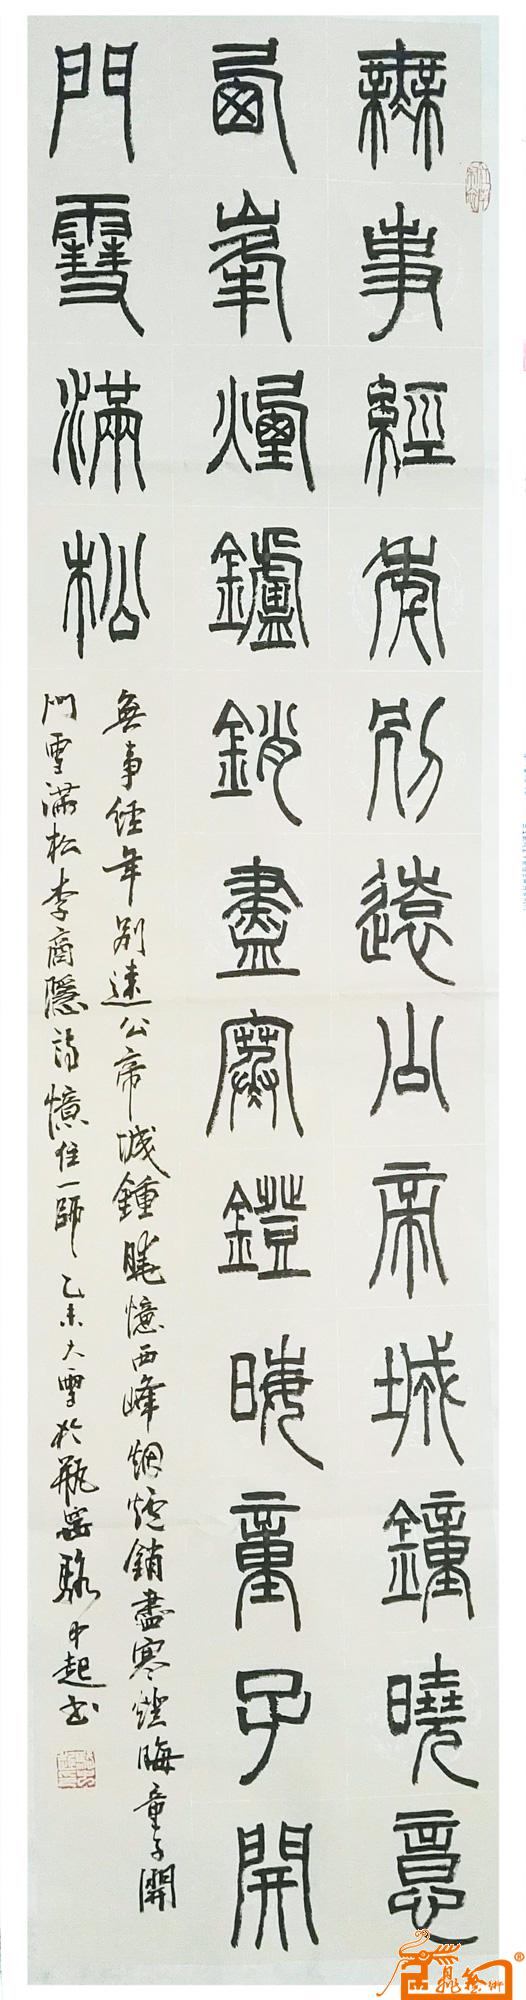 無事經年別遠公帝城鐘曉意
西峯煙鑪銷盡寒鐙晦童子開
門雪滿松
無事經年別遠公帝城鍾曉憶西峰烟爐銷盡寒燈晦童子開
門雪滿松李商隱詩憶住一師乙未大雪於瓶窑駱中起书